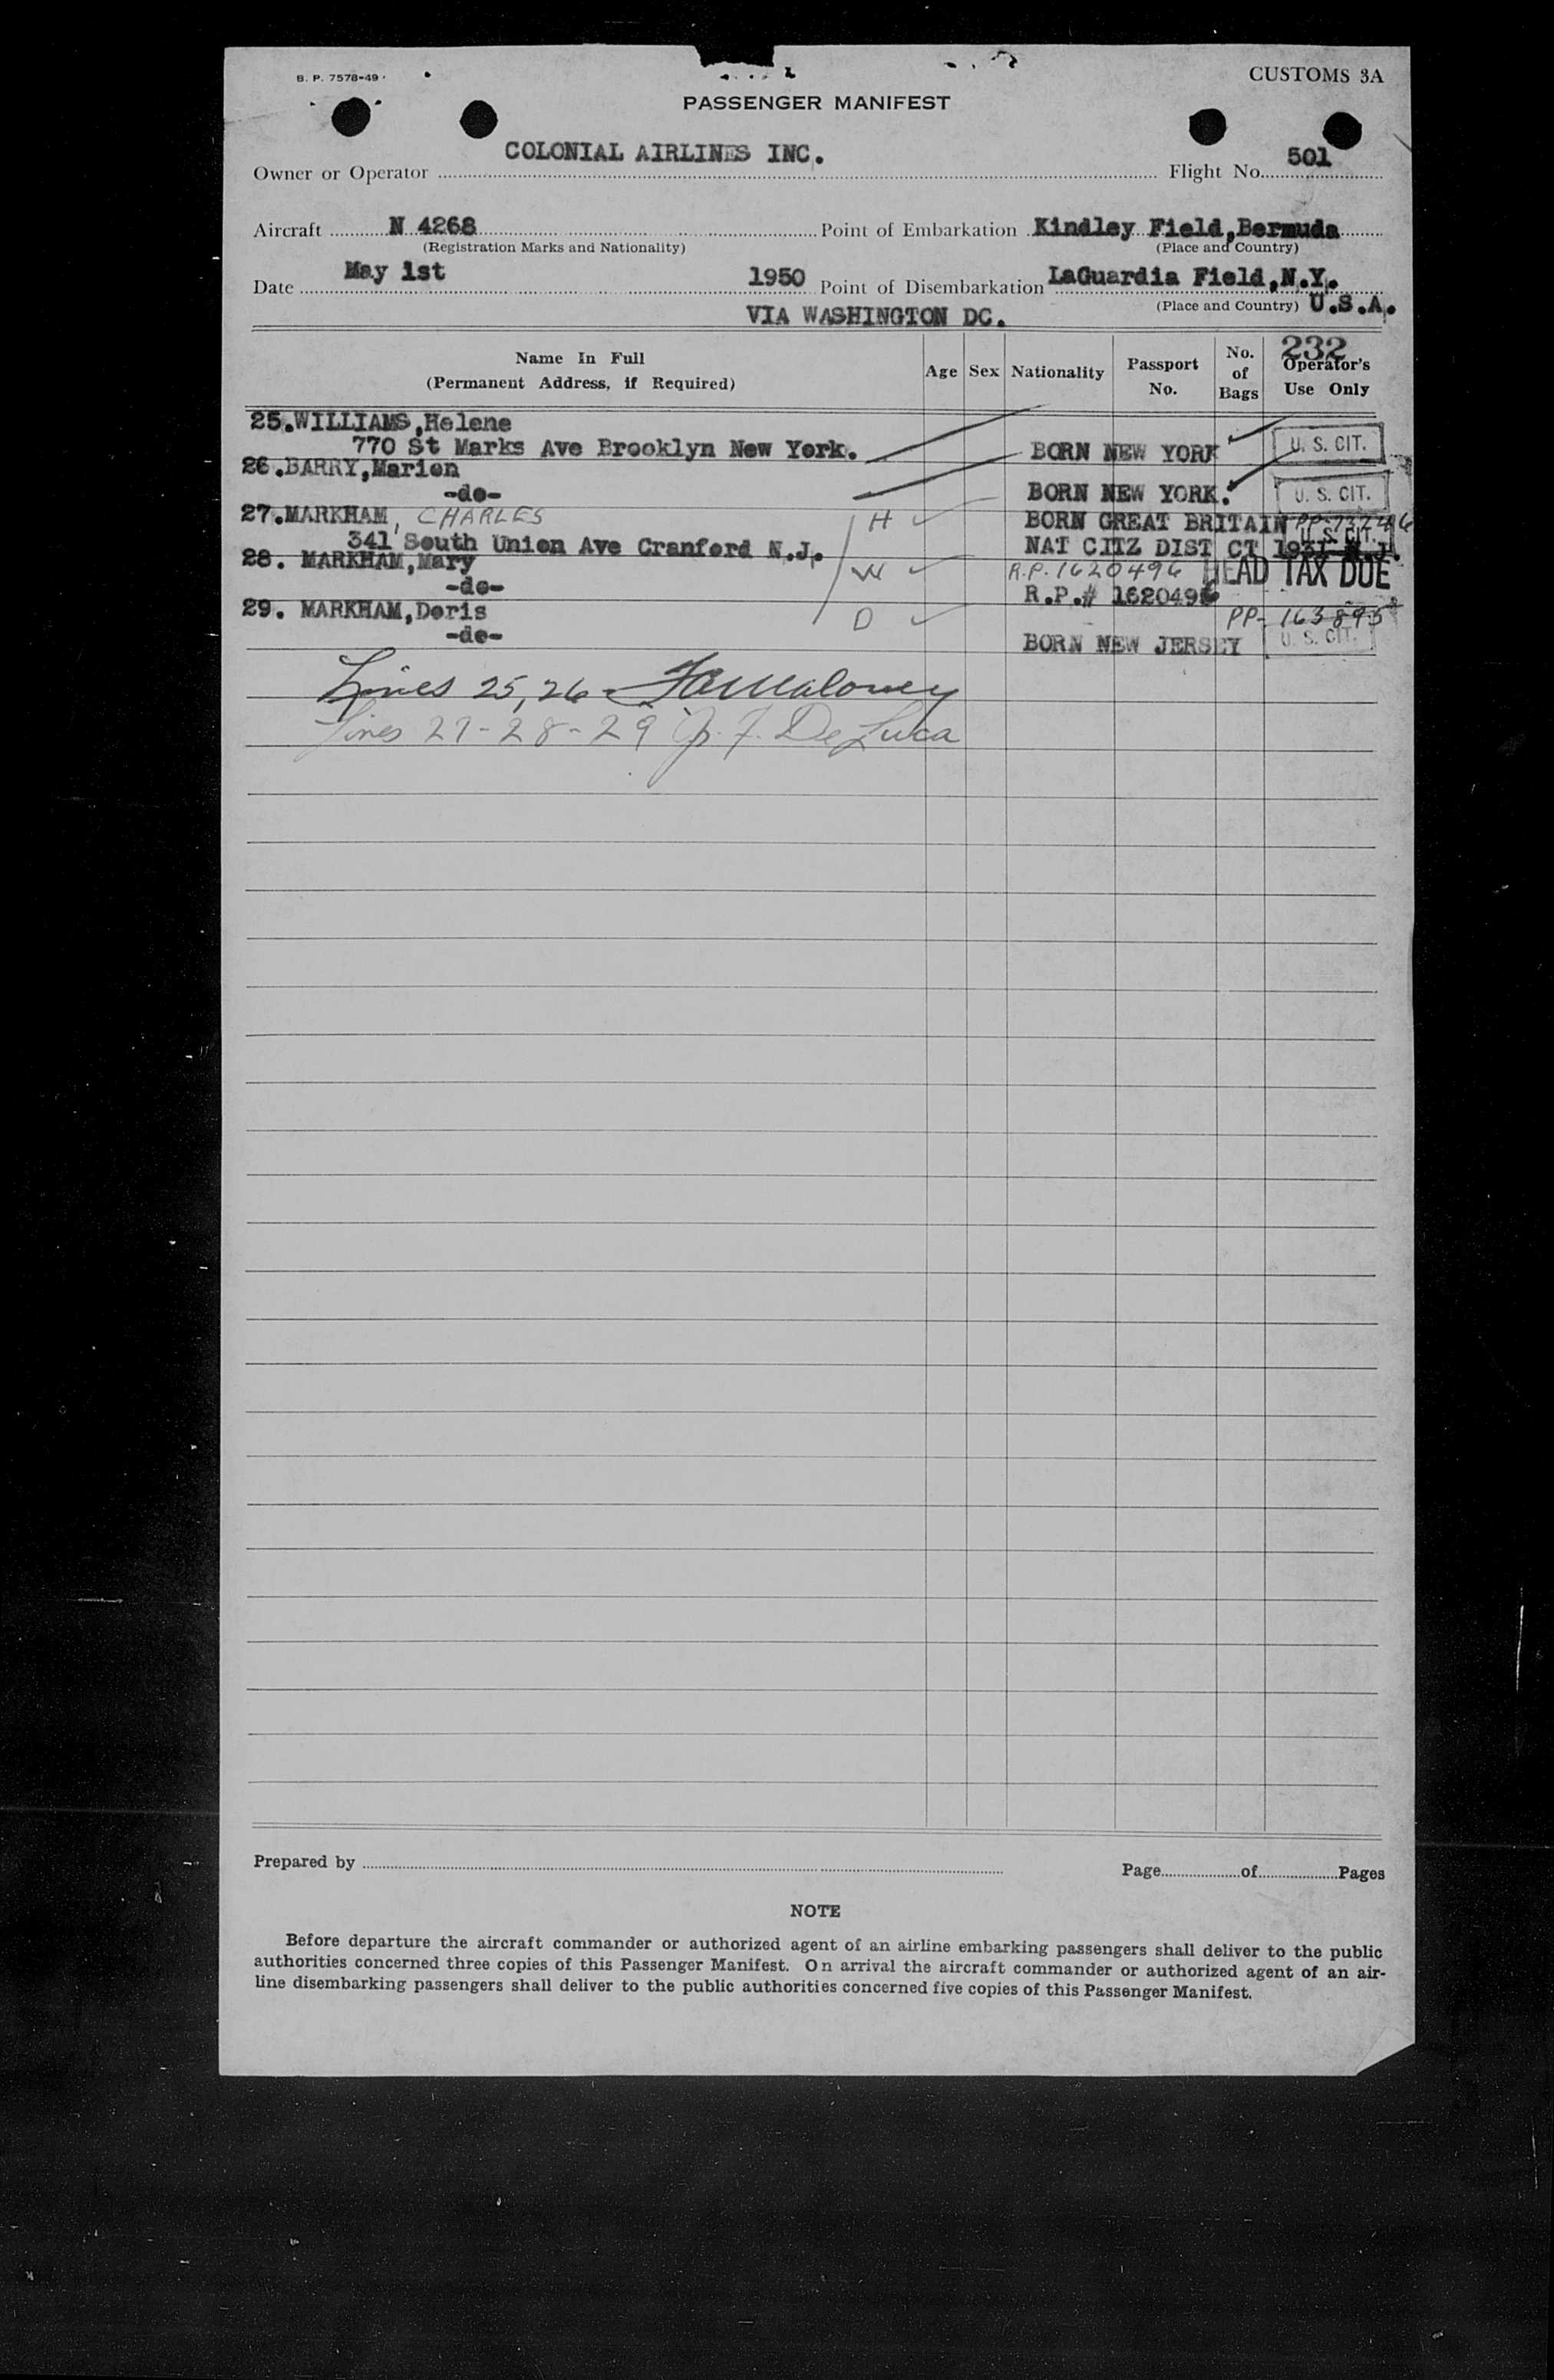 B. P. 7578-49
CUSTOMS 3A
PASSENGER MANIFEST
COLONIAL AIRLINES INC.
Owner or Operator Flight No. 501
Aircraft N 4268 Point of Embarkation Kindley Field,Bermuda
(Registration Marks and Nationality) (Place and Country)
Date May 1st 1950 Point of Disembarkation LaGuardia Field,N.Y.
(Place and Country) U.S.A.
VIA WASHINGTON DC.
232
Name In Full (Permanent Address, if Required) Age Sex Nationality Passport No. No. of Bags Operator's Use Only
25.WILLIAMS,Helene
770 St Marks Ave Brooklyn New York. BORN NEW YORK U. S. CIT.
26.BARRY,Marion
-do- BORN NEW YORK. U. S. CIT.
27.MARKHAM, CHARLES H BORN GREAT BRITAIN PP-
341 South Union Ave Cranford N.J. NAT CITZ DIST CT 1931 N.J. U. S. CIT.
28. MARKHAM,Mary W R.P. 1620496 HEAD TAX DUE
-do- R.P.# 1620496
29. MARKHAM,Doris D PP- 163895
-do- BORN NEW JERSEY U. S. CIT.
Lines 25,26 - Maloney
Lines 27-28-29 De Luca
Prepared by Page of Pages
NOTE
Before departure the aircraft commander or authorized agent of an airline embarking passengers shall deliver to the public
authorities concerned three copies of this Passenger Manifest. On arrival the aircraft commander or authorized agent of an air-
line disembarking passengers shall deliver to the public authorities concerned five copies of this Passenger Manifest.